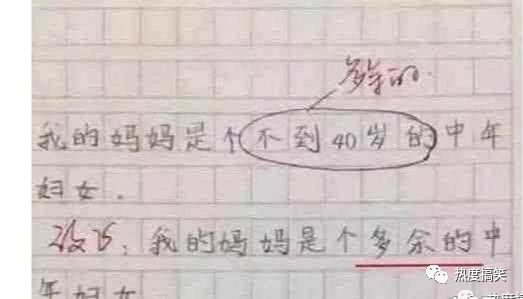 多余的
我的妈妈是个不到40岁的中年
妇女.
改正:我的妈妈是个多余的中
年妇女
热度搞笑
热度搞